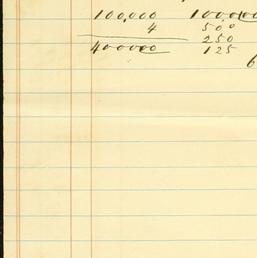 100,000 100000
4 500
400000 250
125
6